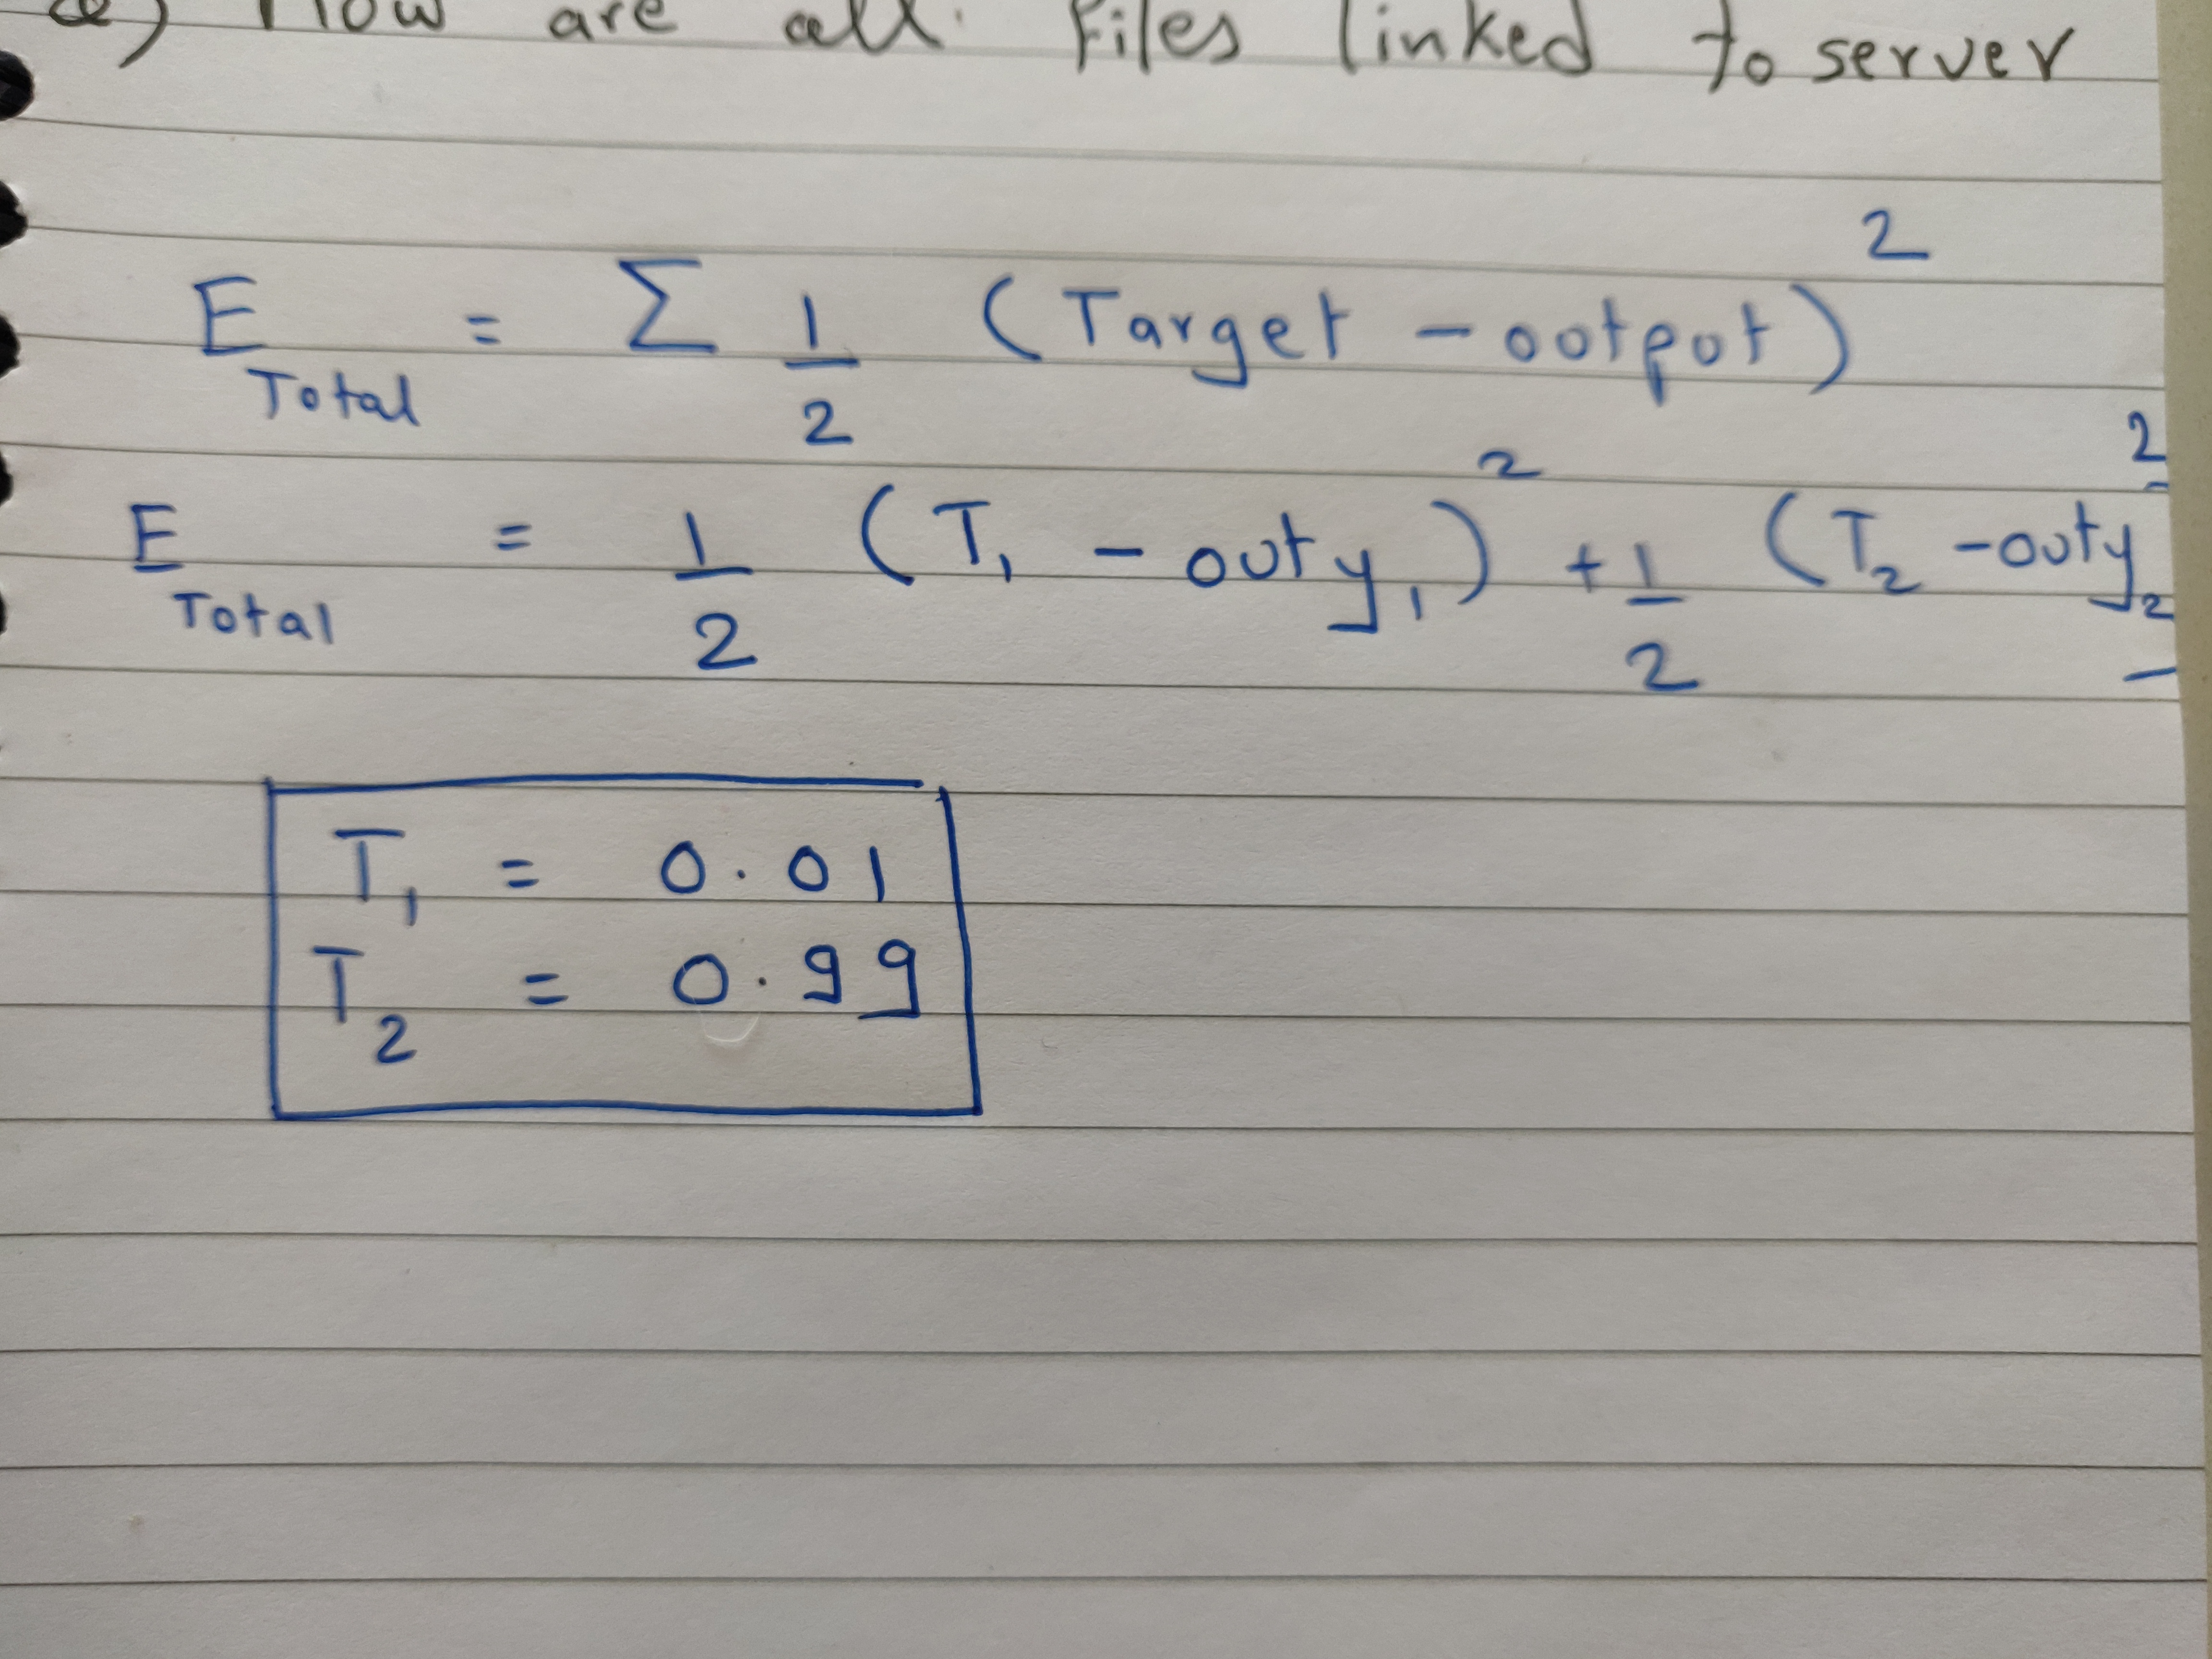 How are all files linked to server
E Total = Σ 1/2 (Target - ootpot)²
E Total = 1/2 (T₁ - outy₁)² + 1/2 (T₂ - outy₂)²
T₁ = 0.01
T₂ = 0.99